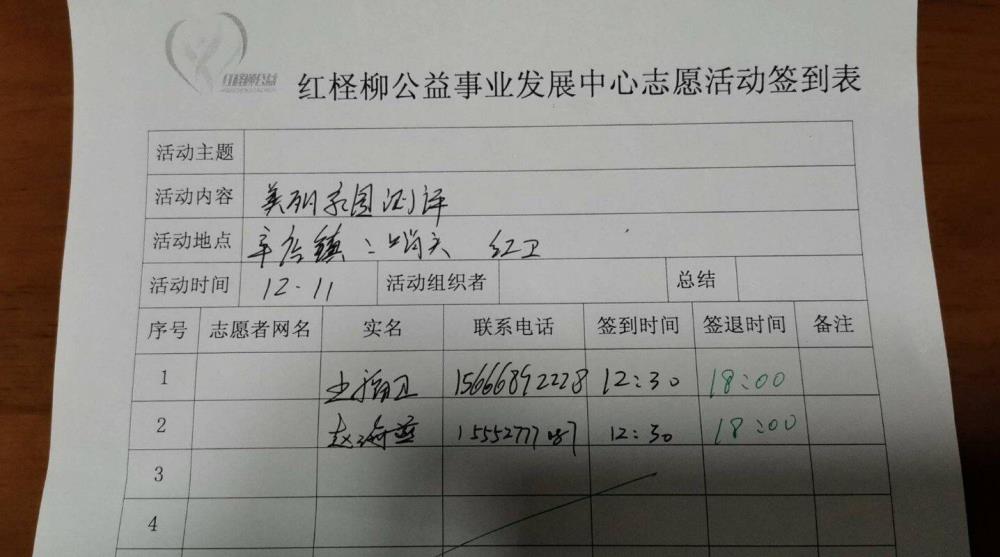 红柽柳公益
红柽柳公益事业发展中心志愿活动签到表
活动主题
活动内容 美丽家园测评
活动地点 辛店镇 红卫
活动时间 12.11 活动组织者 总结
序号 志愿者网名 实名 联系电话 签到时间 签退时间 备注
1 15666892228 12:30 18:00
2 赵海燕 15552777187 12:30 18:00
3
4